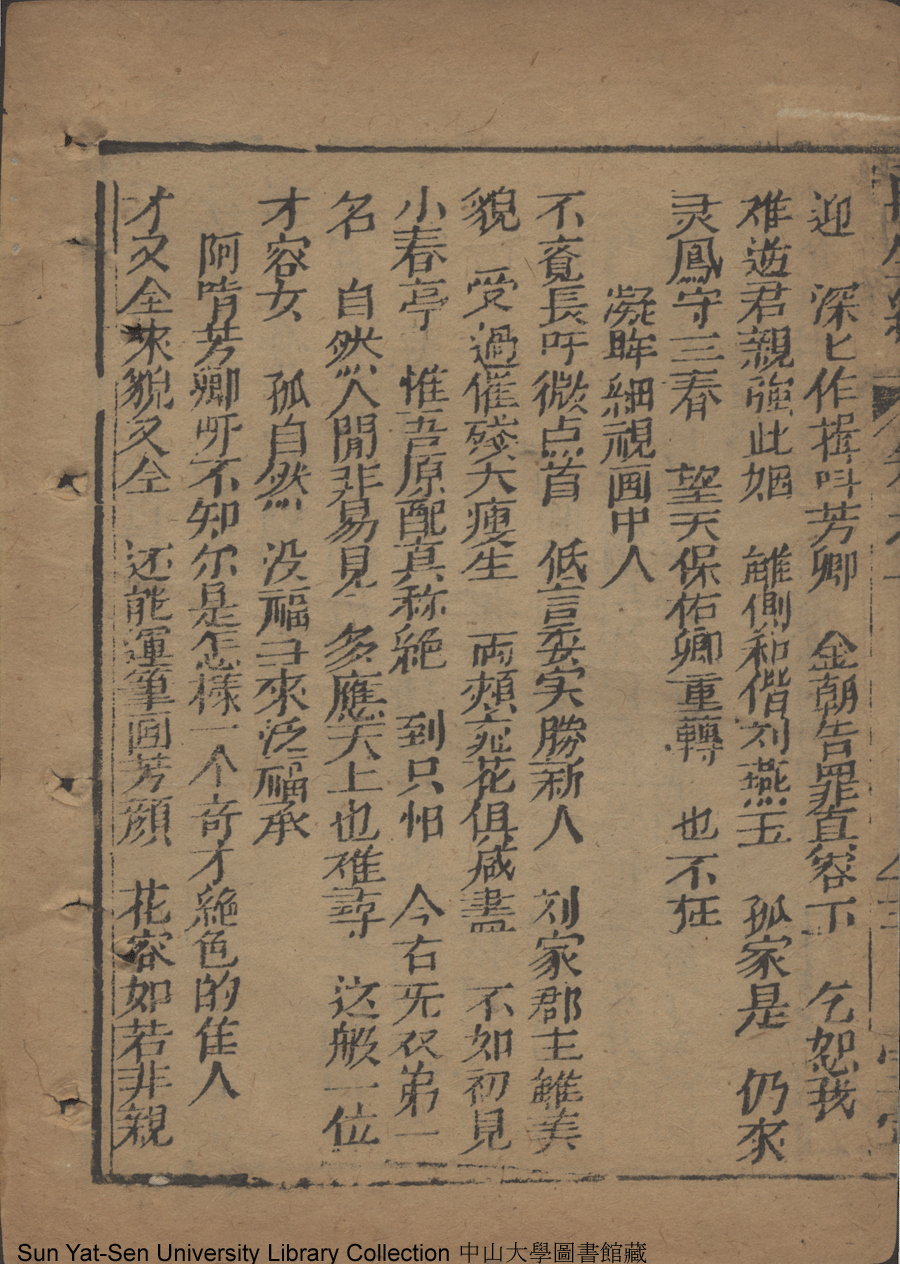 迎　深匕作揖叫芳卿　金朝告罪直容下　乞恕我
难逆君親強此姻　雖側和偕刘燕玉　孤家是　仍來
灵鳳守三春　望天保佑卿重轉　也不在
凝眸細視画中人
不覔長吁微点首　低言委实勝新人　刘家郡主雖美
貌　受過催殘大瘦生　両頰花俱减盡　不如初見
小春亭　惟吾原配真称絶　到只怕　今右旡双第一
名　自然人間非易見　多應天上也难尋　这般一位
才容女　孤自然　没福子來泛福承
阿唷芳卿吓不知尔是怎樣一个奇才絶色的佳人
才又全來貌又全　还能運筆画芳顔　花容如若非親
Sun Yat-Sen University Library Collection 中山大學圖書館藏